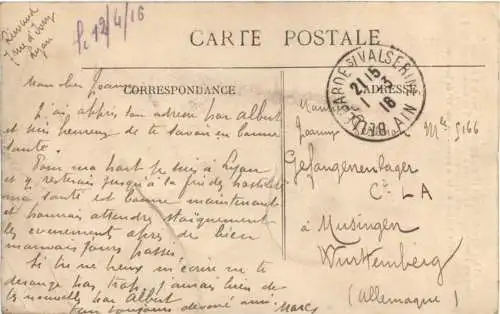 Reverend
7 rue d'Ivry
Lyon
R 12/4/16
CARTE POSTALE
CORRESPONDANCE
ADRESSE
BELLEGARDE S/ VALSERINE
21 15
1 - 3
16
AIN
Mon cher Joanny
J'ai appris ton adresse par Albert
et suis heureux de te savoir en bonne
santé.
Pour ma part je suis à Lyon
et y resterais jusqu'à la fin des hostilités
ma santé est bonne maintenant
et pourrais attendre stoïquement
les évènements après de bien
mauvais jours passés.
Si tu ne peux m'écrire ne te
dérange pas trop, j'aurais bien de
tes nouvelles par Albert
Ton toujours dévoué ami.
Marcel
Joanny
Mle 5166
Gefangenenlager
Cie LA
à Münsingen
Wurttemberg
(Allemagne)